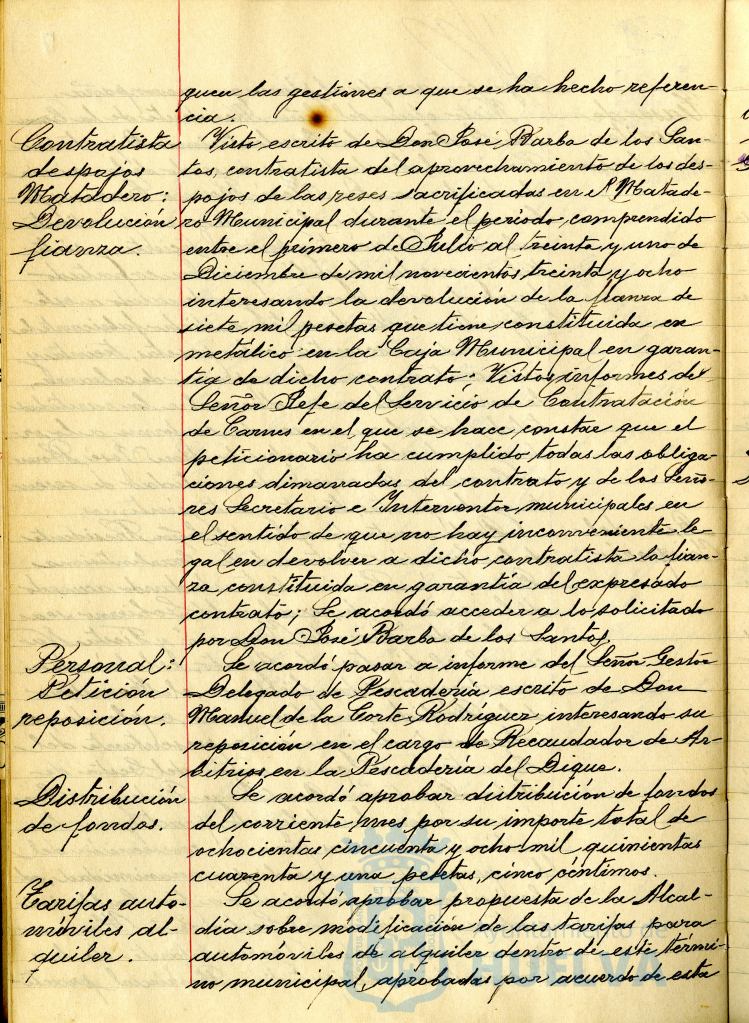 quen las gestiones a que se ha hecho referen-
cia.
Contratista
despojos
Matadero:
Devolución
fianza.
Visto escrito de Don José Barba de los San-
tos, contratista del aprovechamiento de los des-
pojos de las reses sacrificadas en el Matade-
ro Municipal durante el período comprendido
entre el primero de Julio al treinta y uno de
Diciembre de mil novecientos treinta y ocho
interesando la devolución de la fianza de
siete mil pesetas que tiene constituida en
metálico en la Caja Municipal en garan-
tía de dicho contrato; Vistos informes del
Señor Jefe del Servicio de Contratación
de Carnes en el que se hace constar que el
peticionario ha cumplido todas las obliga-
ciones dimanadas del contrato y de los Seño-
res Secretario e Interventor municipales en
el sentido de que no hay inconveniente le-
gal en devolver a dicho contratista la fian-
za constituida en garantía del expresado
contrato; Se acordó acceder a lo solicitado
por Don José Barba de los Santos.
Personal:
Petición
reposición.
Se acordó pasar a informe del Señor Gestor
Delegado de Pescadería escrito de Don
Manuel de la Corte Rodríguez interesando su
reposición en el cargo de Recaudador de Ar-
bitrios en la Pescadería del Dique.
Distribución
de fondos.
Se acordó aprobar distribución de fondos
del corriente mes por su importe total de
ochocientas cincuenta y ocho mil quinientas
cuarenta y una pesetas, cinco céntimos.
Tarifas auto-
móviles al-
quiler.
Se acordó aprobar propuesta de la Alcal-
día sobre modificación de las tarifas para
automóviles de alquiler dentro de este térmi-
no municipal, aprobadas por acuerdo de esta